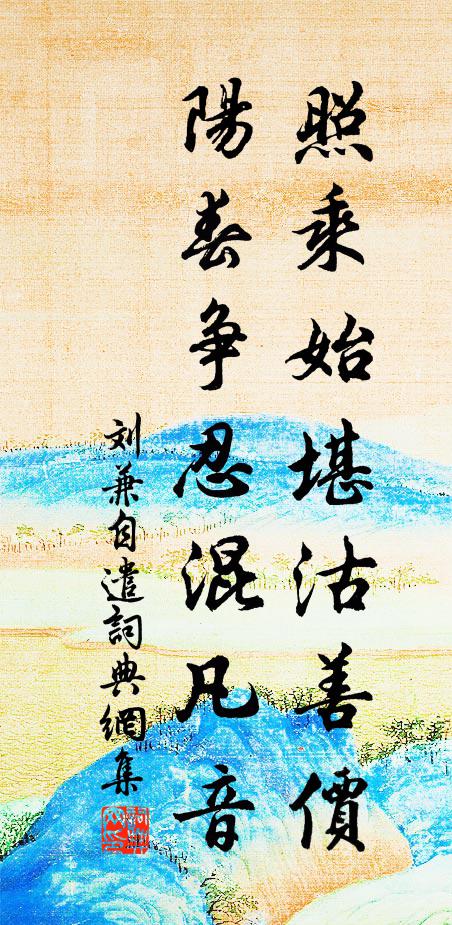 照乘始堪沽善價
陽春争忍混凡音
刘兼自遣詞典網集